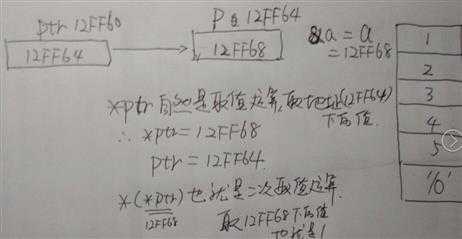 ptr 12FF60
P 12FF64
&a = a
= 12FF68
12FF64
12FF68
1
2
3
4
5
'\0'
*ptr 自然是取值运算,取地址(12FF64)
下的值.
∴ *ptr = 12FF68
ptr = 12FF64
*(*ptr) 也就是二次取值运算.
12FF68
取12FF68下的值
也就是1